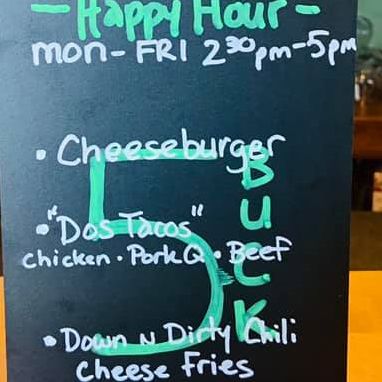 - Happy Hour -
mon-FRI 2³⁰pm-5pm
• Cheeseburger
• "Dos Tacos"
chicken • Pork Q • Beef
• Down N Dirty Chili
Cheese Fries
5
BUCK